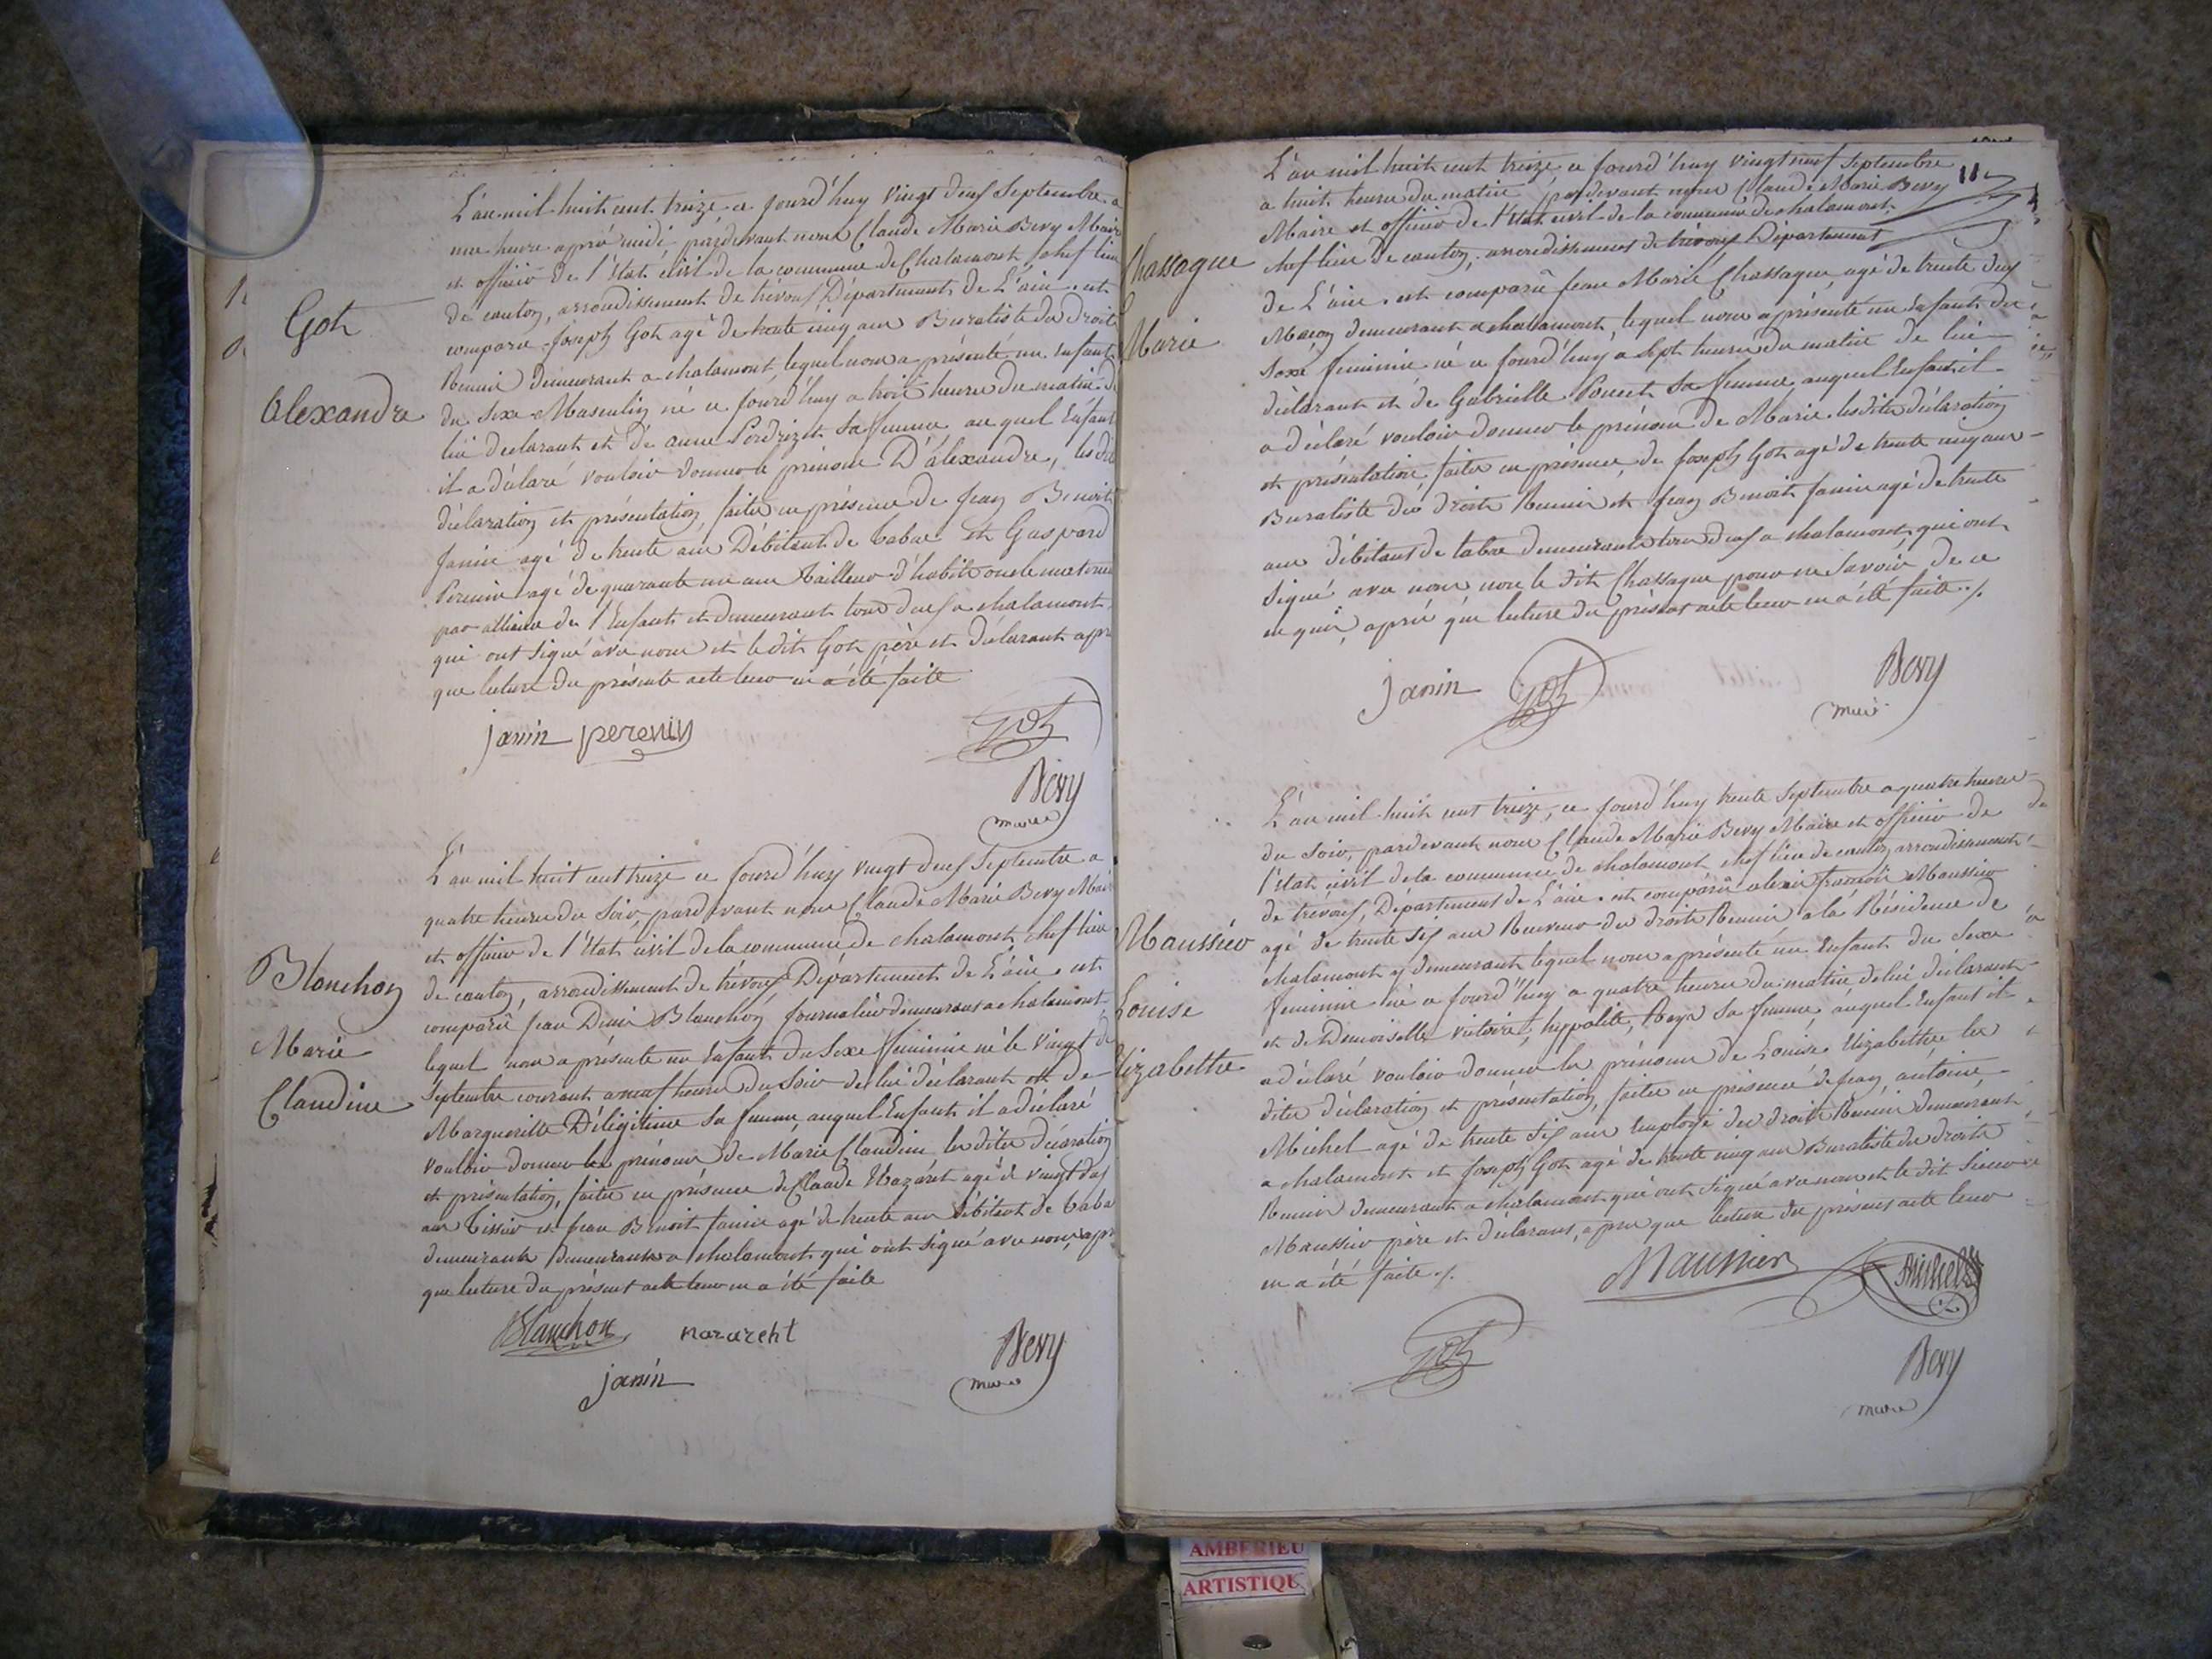 Goh
Alexandre
L'an mil huit cent treize ce jourd'huy vingt deux septembre a
une heure apré midi, pardevant nous Claude Marie Bevy Maire
et officier de l'Etat civil de la commune de Chalamont chef lieu
de canton, arrondissement de trévoux Département de L'ain. est
comparu joseph Goh agé de trente cinq ans Buraliste des droits
Reunis demeurant a chalamont, lequel nous a présenté un Enfant
du sexe Masculin né ce jourd'huy a huit heures du matin de
lui declarant et de anne Perdrizet sa femme au quel Enfant
il a déclaré vouloir donner le prénom D'alexandre, les dits
déclaration et présentation, faites en présence de jean Benoit
Janin agé de trente ans Débitant de tabac et Gaspard
Perenin agé de quarante un ans Tailleur d'habits oncle maternel
par alliance de l'Enfant et demeurant tous deux a chalamont,
qui ont signé avec nous et le dit Goh père et déclarant apré
que lecture du présente acte leur en a été faite
janin perenin Goh
Bevy
maire
Blonchon
Marie
Claudine
L'an mil huit cent treize ce jourd'huy vingt deux Septembre a
quatre heures du soir, pardevant nous Claude Marie Bevy Maire
et officier de l'Etat civil de la commune de chalamont, chef lieu
de canton, arrondissement de trévoux Département de L'ain. est
comparû jean Denis Blanchon journalier demeurant a chalamont,
lequel nous a présenté un Enfant du sexe feminin né le vingt
Septembre courant a neuf heures du soir de lui déclarant et de
Marguerite Déligitime sa femme, auquel Enfant il a déclaré
vouloir donner les prénoms de Marie Claudine les dites décaration
et présentation, faites en présence de Claude Nazaret agé de vingt deux
ans Tissier et jean Benoit Janin agé de trente ans Débitant de tabac
demeurants demeurants a chalamont qui ont signé avec nous, apré
que lecture du présent acte leur en a été faite
Blanchon nazareht
janin Bevy
maire
Chassagne
Marie
L'an mil huit cent treize ce jourd'huy vingt neuf septembre
a huit heures du matin, pardevant nous Claude Marie Bevy
Maire et officier de l'Etat civil de la commune de chalamont,
chef lieu de canton, arrondissement de trévoux Département
de L'ain. est comparû jean Marie Chassagne, agé de trente deux
Maçon demeurant a chalamont, lequel nous a présenté un Enfant du
sexe feminin né ce jourd'huy a sept heures du matin de lui
déclarant et de Gabrielle Poncet sa femme, auquel Enfant il
a déclaré vouloir donner le prénom de Marie. les dites déclaration
et présentation, faites en présence, de Joseph Goh agé de trente cinq ans
Buraliste des droits Reunis et jean Benoit Janin agé de trente
ans débitant de tabac demeurants tous deux a chalamont, qui ont
signé avec nous non le dit Chassagne pour ne savoir de ce
enquis, apré que lecture du présent acte leur en a été faite ./.
janin Goh Bevy
maire
Maussier
Louise
Elizabethe
L'an mil huit cent treize, ce jourd'huy trente septembre a quatre heures
du soir, pardevant nous Claude Marie Bevy Maire et officier de
l'Etat civil de la commune de chalamont chef lieu de canton, arrondissement
de trévoux, Département de L'ain. est comparû alexis françois Maussier
agé de trente six ans Receveur des droits Reunis a la Résidence de
chalamont y demeurant lequel nous a présenté un Enfant du sexe
feminin né ce jourd'huy a quatre heures du matin de lui déclarant
et de Demoiselle victoire, hyppolite, Reya sa femme, auquel Enfant il
a déclaré vouloir donner les prénoms de Louise Elizabethe les
dites déclaration et présentation, faites en présence de jean, antoine
Michel agé de trente six ans Employé des droits Reunis demeurant
a chalamont et joseph Goh agé de trente cinq ans Buraliste des droits
Reunis demeurant a chalamont qui ont signé avec nous et le dit Sieur
Maussier père et déclarant, apres que lecture du présent acte leur
en a été faite ./.
Maussier Michel
Goh Bevy
maire
AMBERIEU
ARTISTIQU